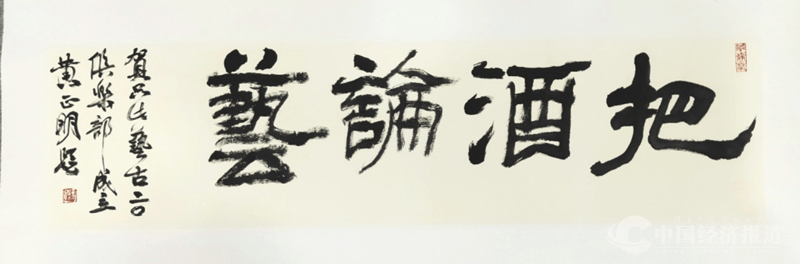 把酒論藝
賀藝古二〇
俱樂部成立
黄正明題
中国经济报道